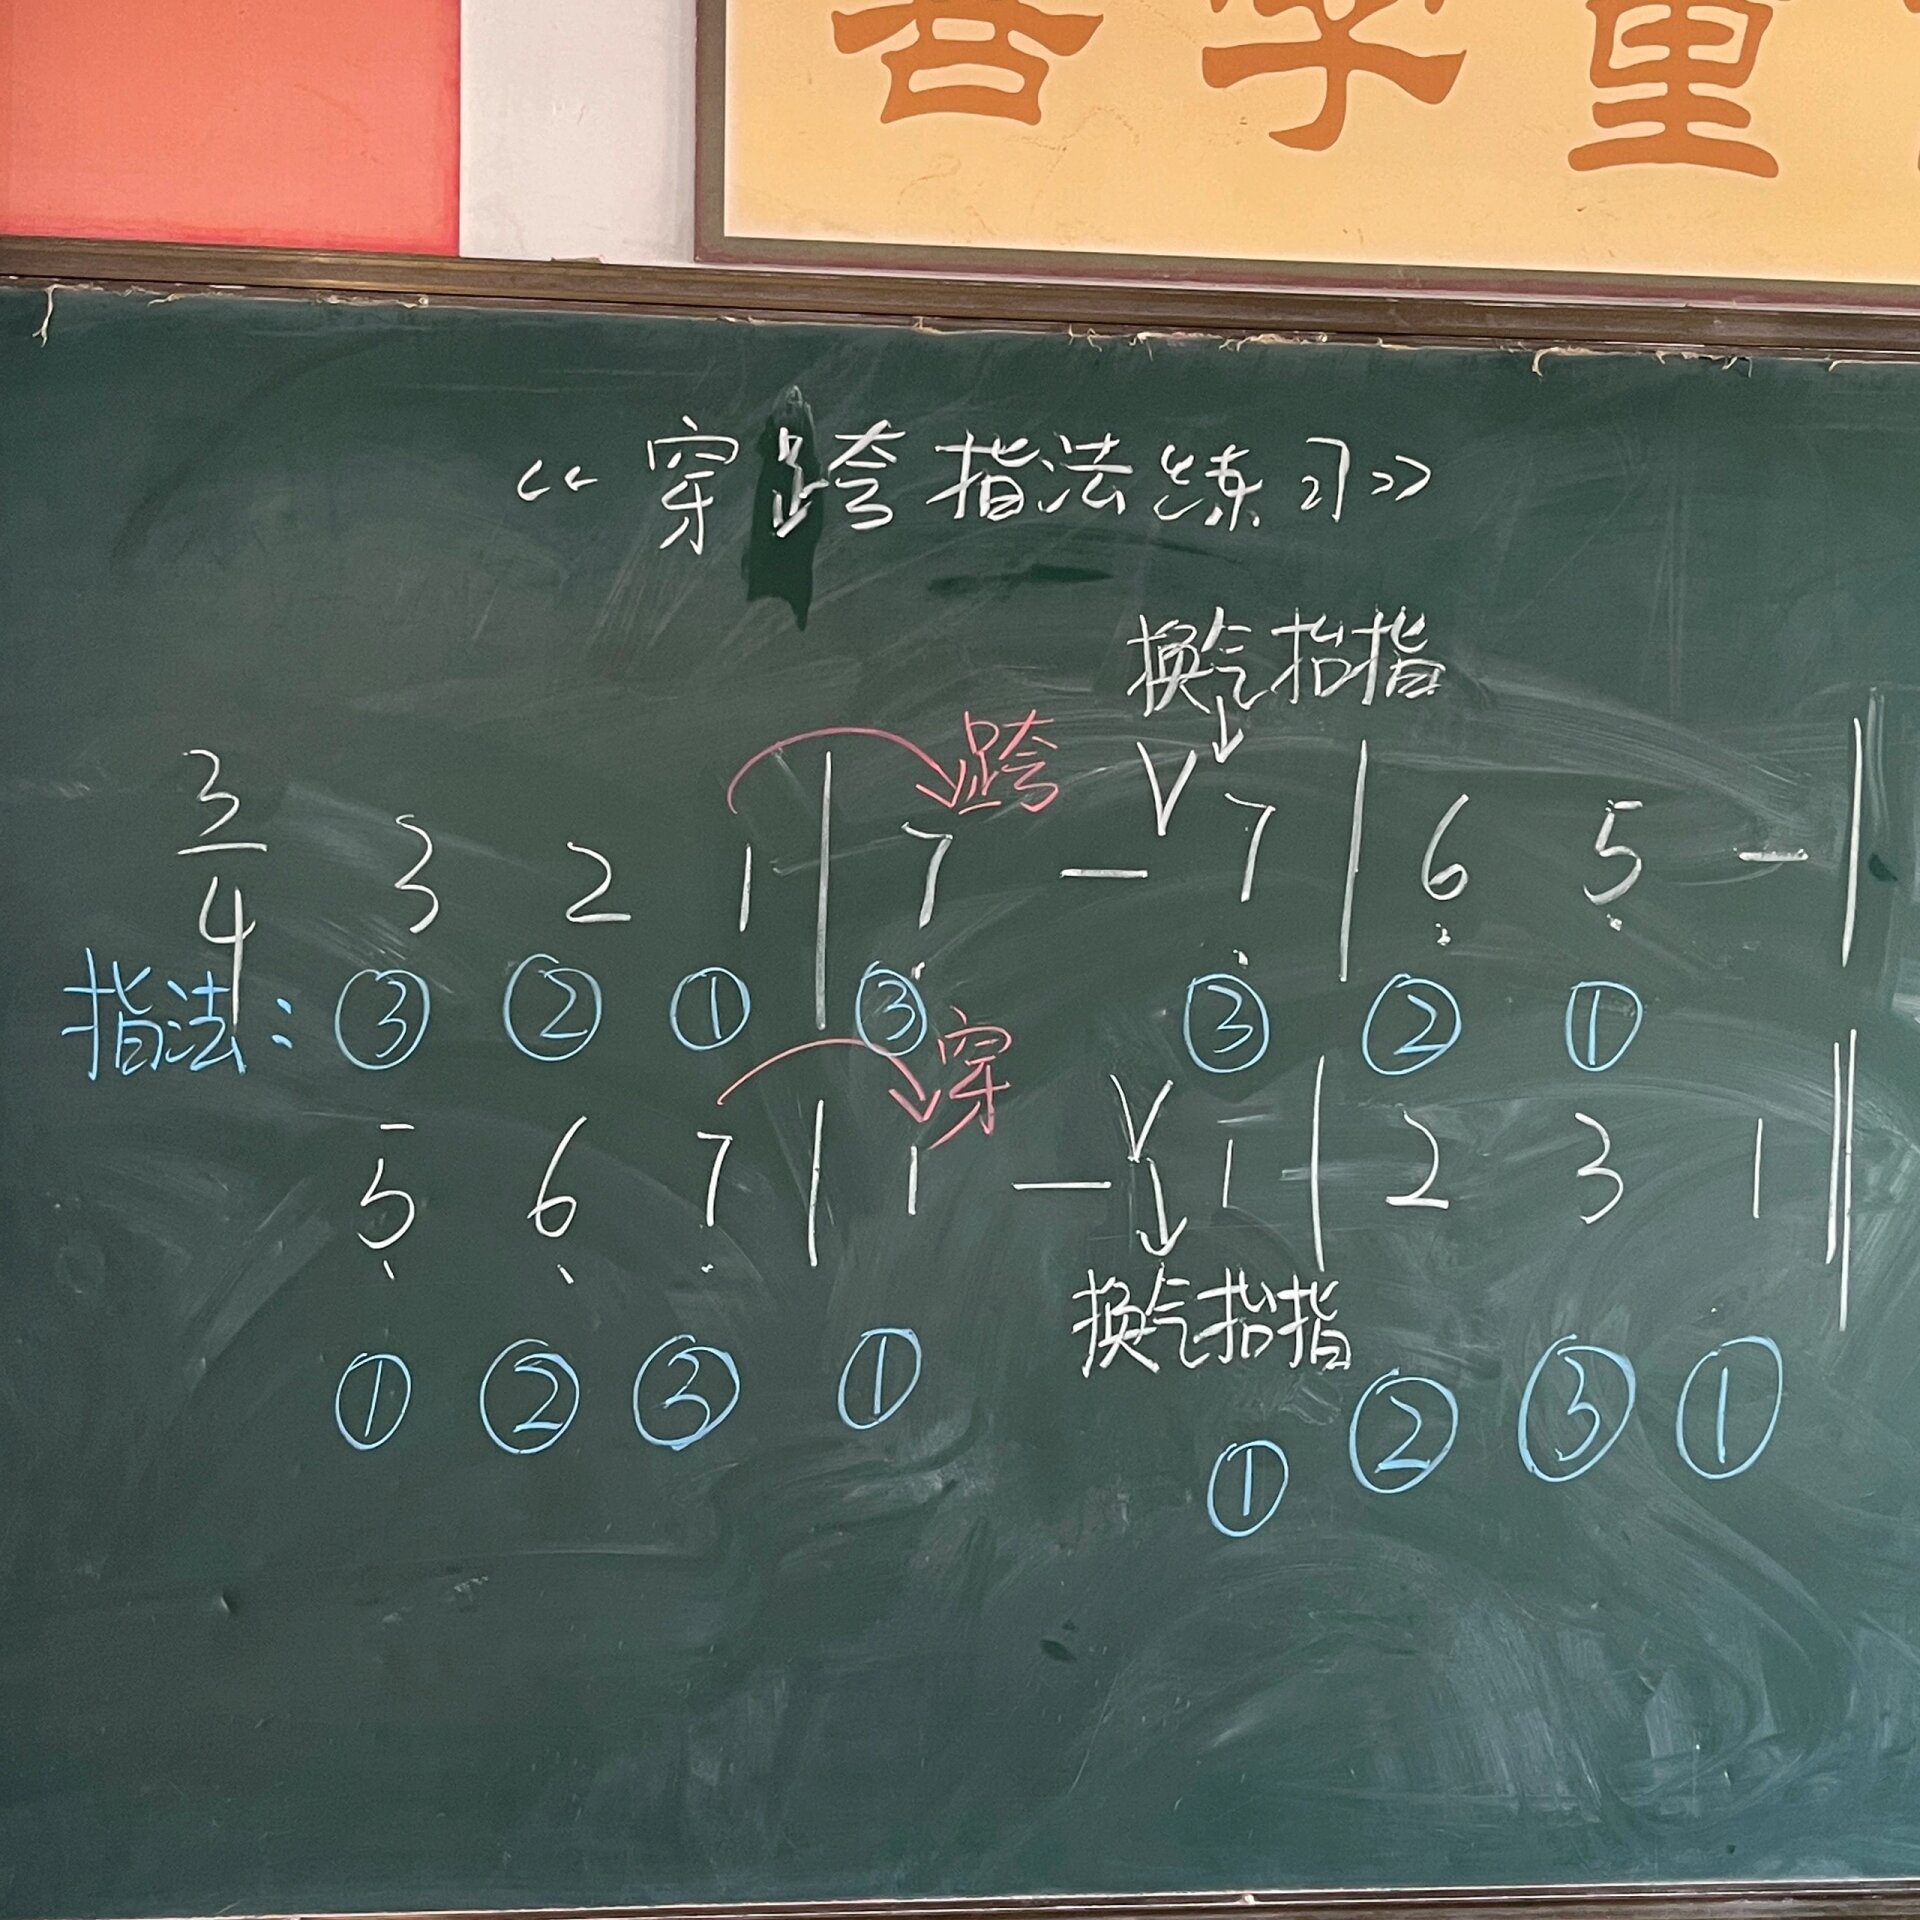 吾学重
《穿跨指法练习》
换气抬指
跨
3/4 3 2 1 | 7̣ - V 7̣ | 6̣ 5̣ - |
指法: ③ ② ① ③ ③ ② ①
穿
5̣ 6̣ 7̣ | 1 - V 1 | 2 3 1 ‖
换气抬指
① ② ③ ① ① ② ③ ①